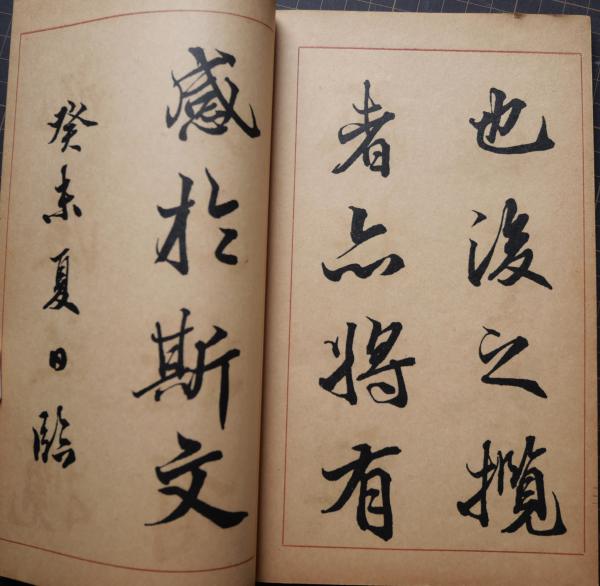 也後之攬
者亦將有
感於斯文
癸未夏日臨